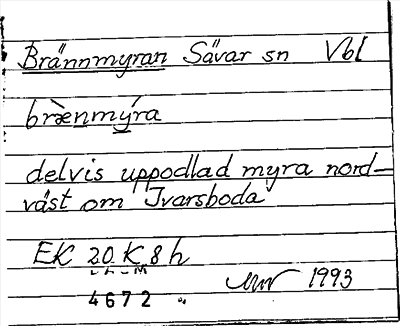 Brännmyran Sävar sn Vbl
bræ̀nmýra
delvis uppodlad myra nord-
väst om Ivarsboda
EK 20 K 8 h
1993
4672